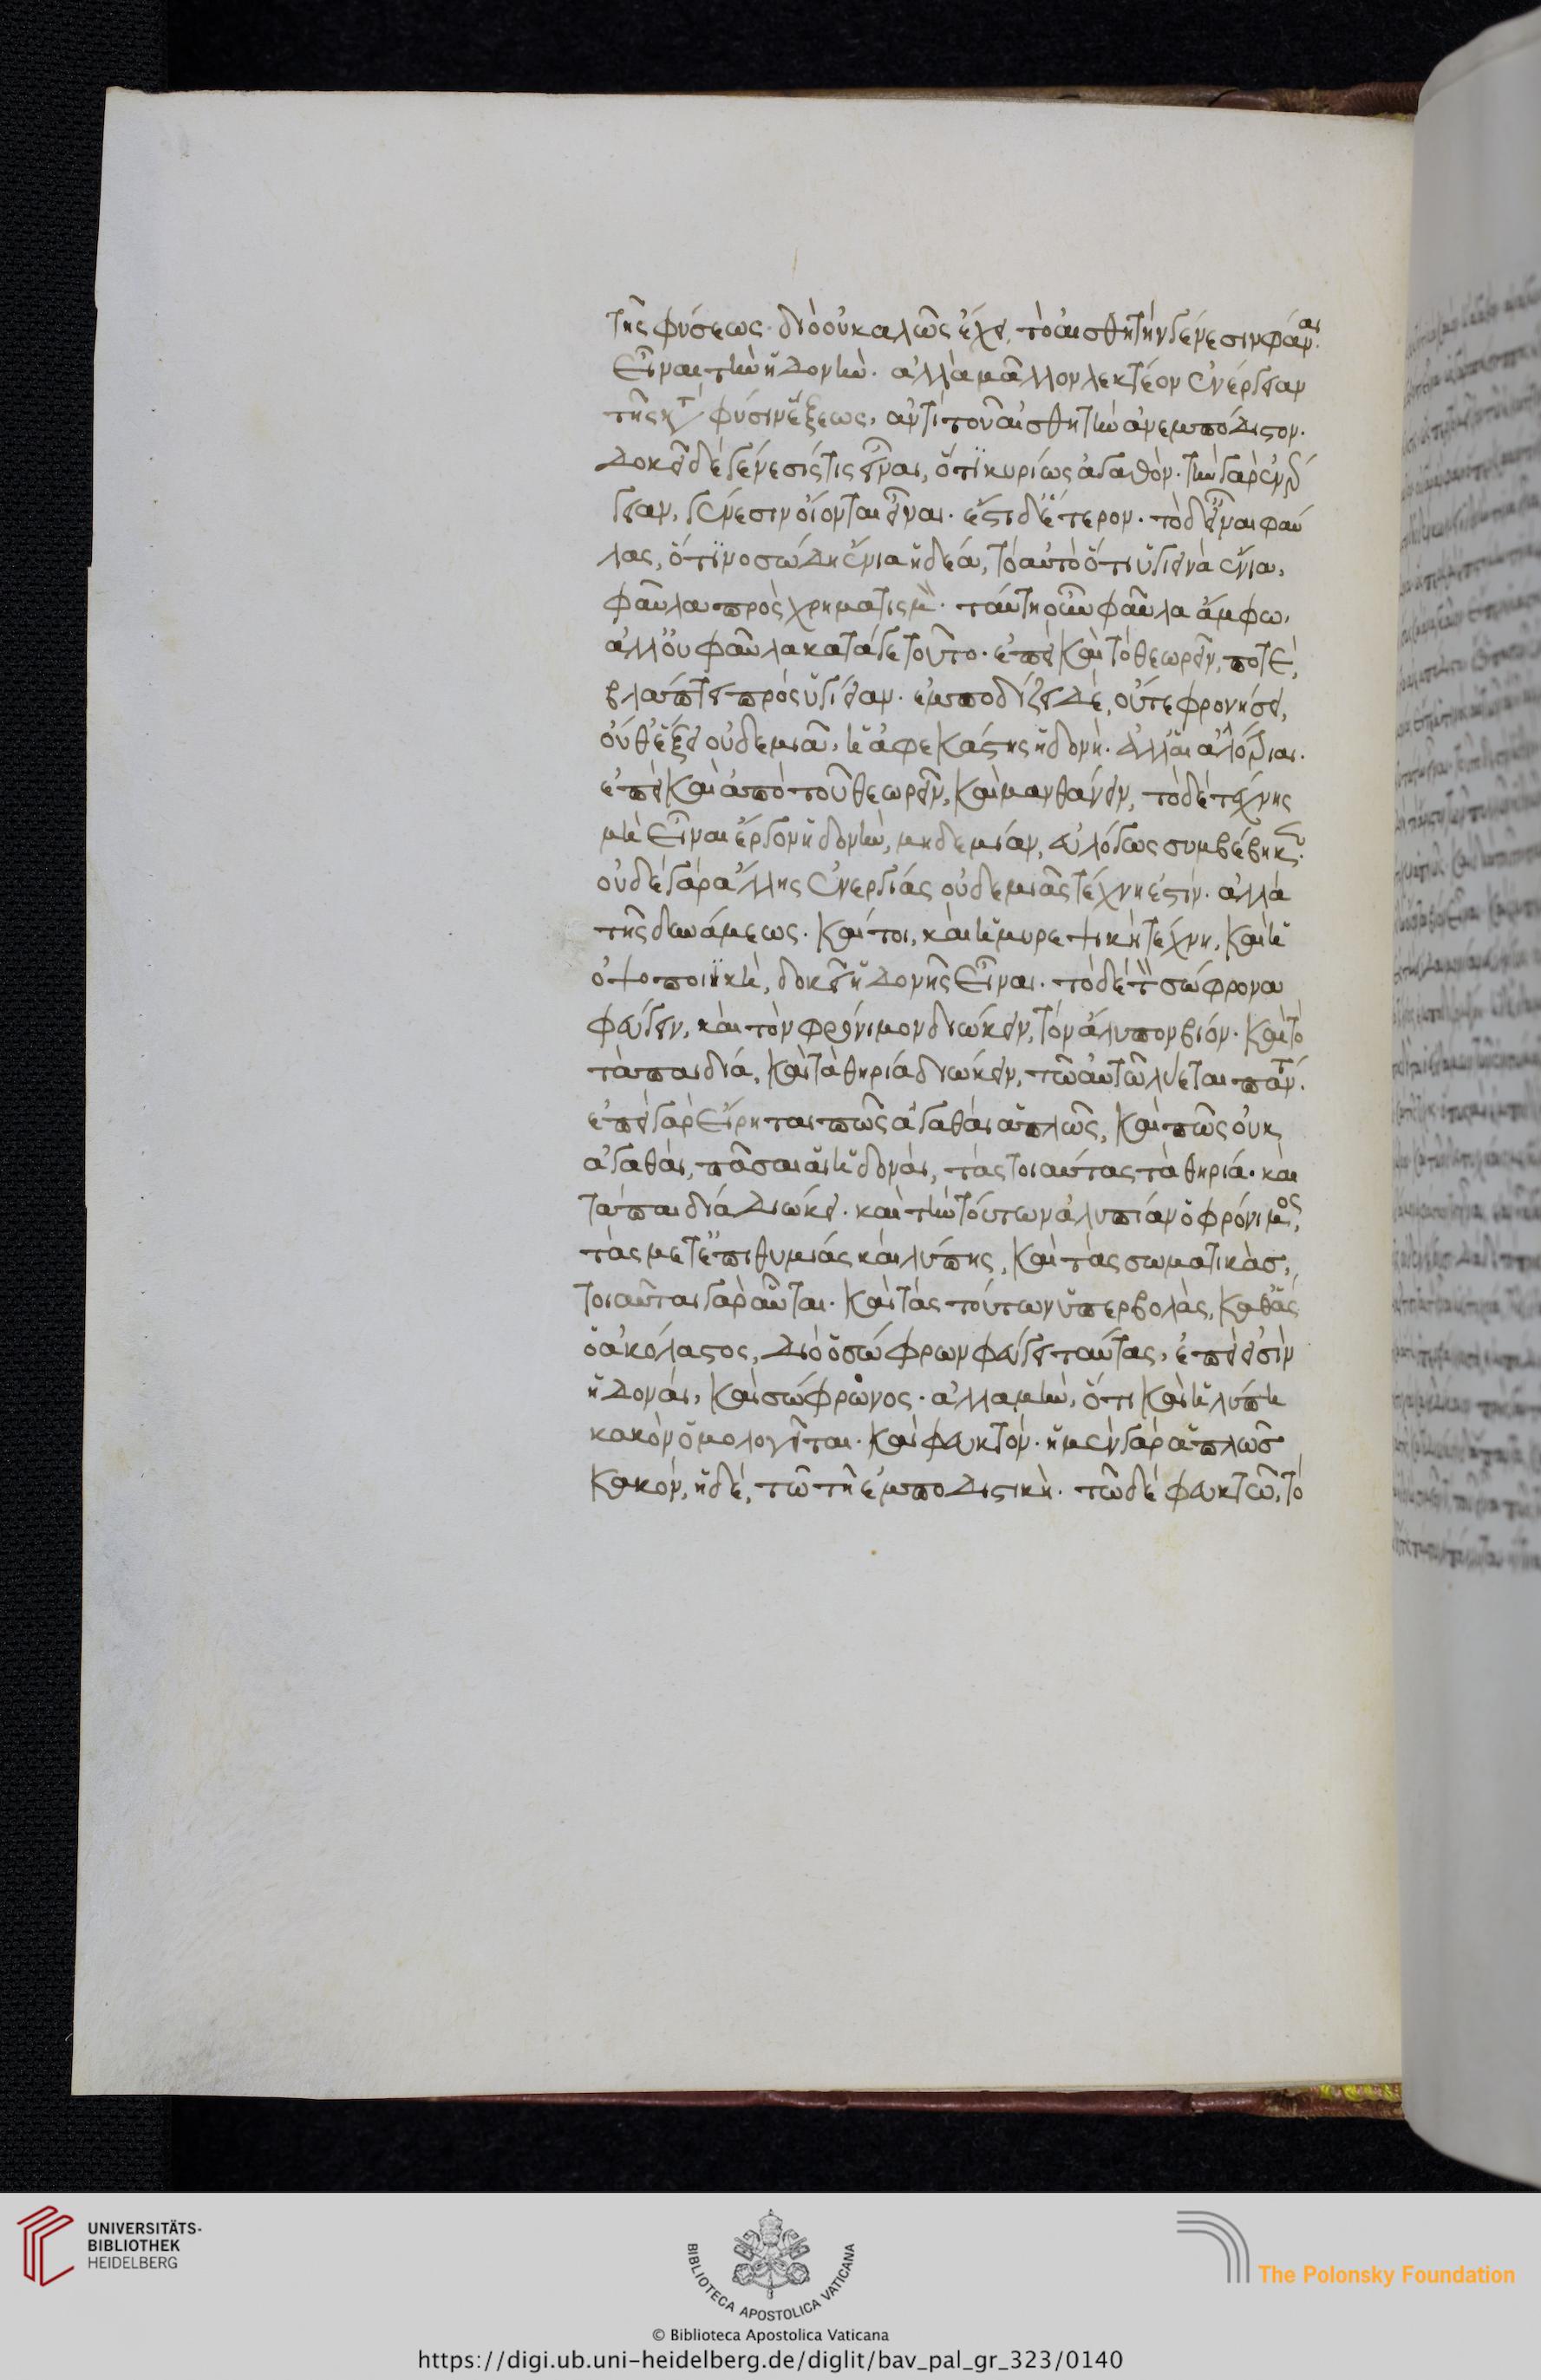 τῆς φύσεως. διὸ οὐ καλῶς ἔχει, τὸ αἰσθητὴν γένεσιν φάναι
εἶναι τὴν ἡδονήν. ἀλλὰ μᾶλλον λεκτέον ἐνέργειαν
τῆς κτ φύσιν ἕξεως, ἀντὶ τοῦ αἰσθητὴν ἀνεμπόδιστον.
δοκεῖ δὲ γένεσίς τις εἶναι, ὅτι κυρίως ἀγαθόν. τὴν γὰρ ἐνέρ
γειαν, γένεσιν οἴονται εἶναι. ἔστι δ' ἕτερον. τὸ δ' εἶναι φαύ
λας, ὅτι νοσώδη ἔνια ἡδέα, τὸ αὐτὸ ὅτι ὑγιεινὰ ἔνια,
φαῦλα πρὸς χρηματισμόν. ταύτη οὖν φαῦλα ἄμφω,
ἀλλ' οὐ φαῦλα κατά γε τοῦτο. ἐπεὶ καὶ τὸ θεωρεῖν, ποτὲ,
βλάπτει πρὸς ὑγίειαν. ἐμποδίζει δὲ, οὔτε φρονήσει,
οὔθ' ἕξει οὐδεμιᾶ, ἡ ἀφ' ἑκάστης ἡδονή. ἀλλ' αἱ ἀλλότριαι.
ἐπεὶ καὶ ἀπὸ τοῦ θεωρεῖν, καὶ μανθάνειν, τὸ δὲ τέχνης
μὴ εἶναι ἔργον ἡδονὴν, μηδεμίαν, εὐλόγως συμβέβηκεν.
οὐδὲ γὰρ ἄλλης ἐνεργίας οὐδεμιᾶς τέχνη ἐστίν. ἀλλὰ
τῆς δυνάμεως. καίτοι, καὶ ἡ μυρεψικὴ τέχνη, καὶ ἡ
ὀψοποιηκὴ, δοκεῖ ἡδονῆς εἶναι. τὸ δὲ τὸν σώφρονα
φεύγειν, καὶ τὸν φρόνιμον διώκειν, τὸν ἄλυπον βίον. καὶ τὸ
τὰ παιδιά, καὶ τὰ θηρία διώκειν, τῶ αὐτῶ λύεται πάντα.
ἐπεὶ γὰρ εἴρηται πῶς ἀγαθαὶ ἁπλῶς, καὶ πῶς οὐκ
ἀγαθαὶ, πᾶσαι αἱ ἡδοναὶ, τὰς τοιαύτας τὰ θηρία. καὶ
τὰ παιδιὰ διώκει. καὶ τὴν τούτων ἀλυπίαν ὁ φρόνιμος,
τὰς μετ' ἐπιθυμίας καὶ λύπης, καὶ τὰς σωματικὰς,
τοιαῦται γὰρ αὗται. καὶ τὰς τούτων ὑπερβολὰς, καθ' ἃς
ὁ ἀκόλαστος, διὸ ὁ σώφρων φεύγει ταύτας, ἐπεὶ εἰσὶν
ἡδοναὶ, καὶ σώφρονος. ἀλλὰ μὴν, ὅτι καὶ ἡ λύπη
κακὸν ὁμολογεῖται. καὶ φευκτόν. ἡ μὲν γὰρ ἁπλῶς
κακόν, ἡ δὲ, τῶ τῆ ἐμποδιστική. τῶ δὲ φευκτῶ, τὸ
UNIVERSITÄTS-
BIBLIOTHEK
HEIDELBERG
BIBLIOTECA APOSTOLICA VATICANA
The Polonsky Foundation
© Biblioteca Apostolica Vaticana
https://digi.ub.uni-heidelberg.de/diglit/bav_pal_gr_323/0140